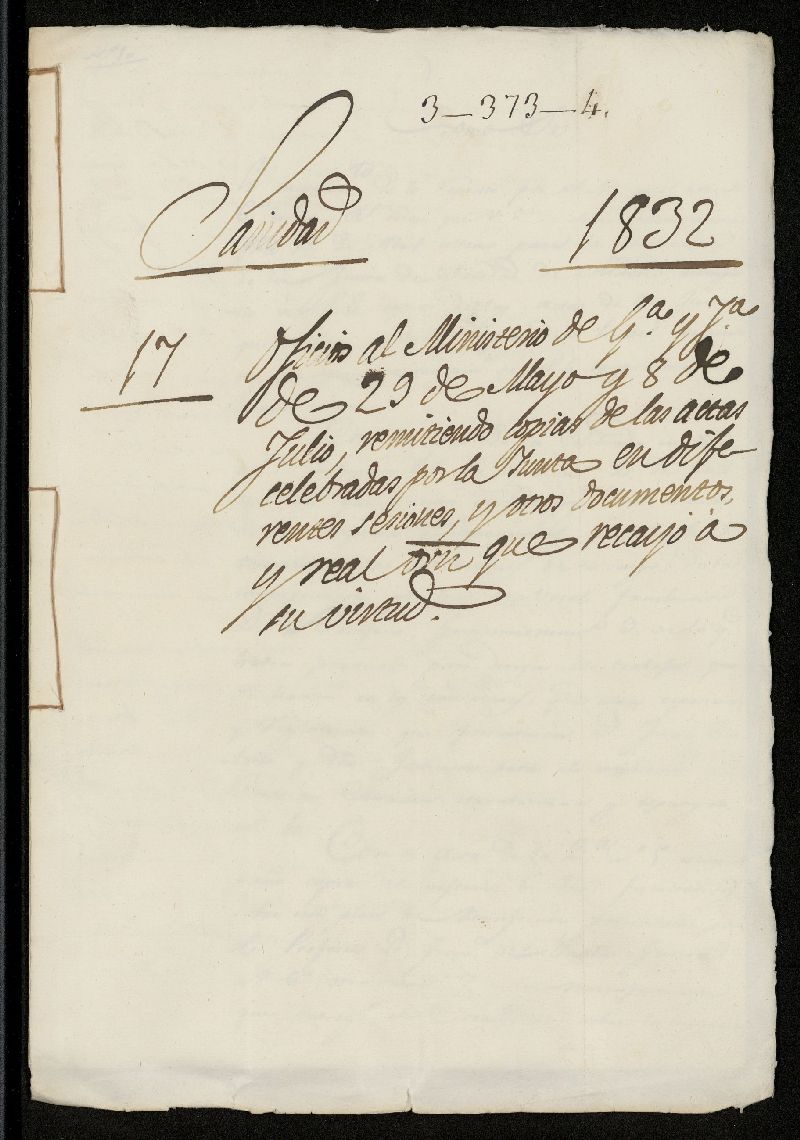 3-373-4.
Sanidad
1832
17
Oficios al Ministerio de G.ª y J.ª
de 29 de Mayo y 8 de
Julio, remitiendo copias de las actas
celebradas por la Junta en dife-
rentes sesiones, y otros documentos,
y real orn que recayó à
su virtud.